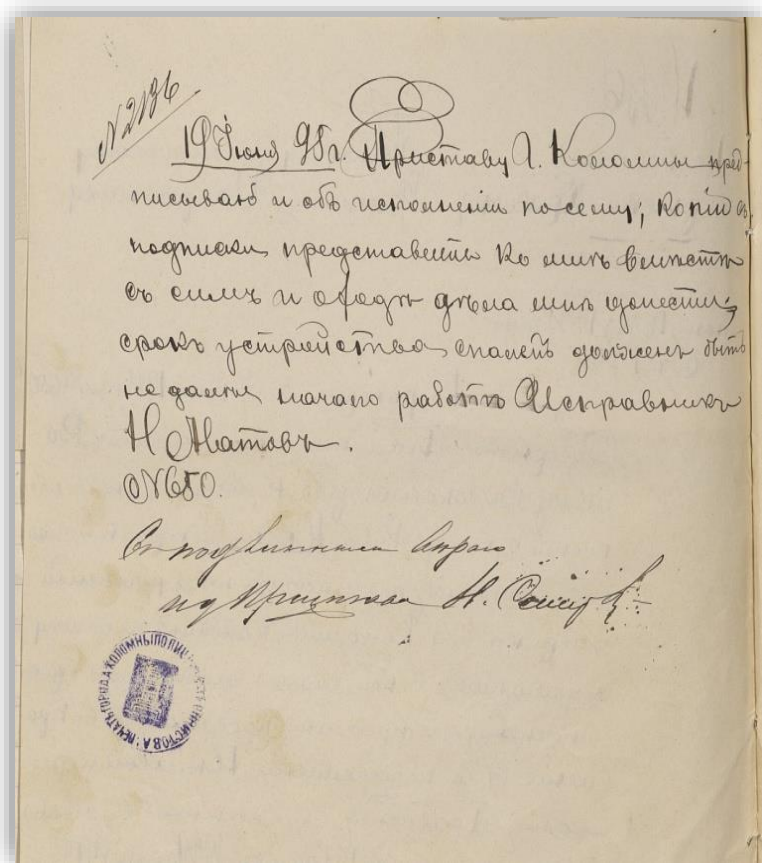 N 2136
19 Іюня 95 г. Приставу г. Коломны пред-
писываю объ исполненіи по сему; копію съ
подписки представить ко мнѣ вмѣстѣ
съ симъ и о ходѣ дѣла мнѣ донести;
срокъ устройства спаленъ долженъ быть
не далѣе начала работъ Исправникъ
Н
N 650.
Съ подлиннымъ вѣрно
ид Пристава Н.
ПЕЧАТЬ ГОРОДА КОЛОМНЫ ПОЛИЦ ПРИСТАВА